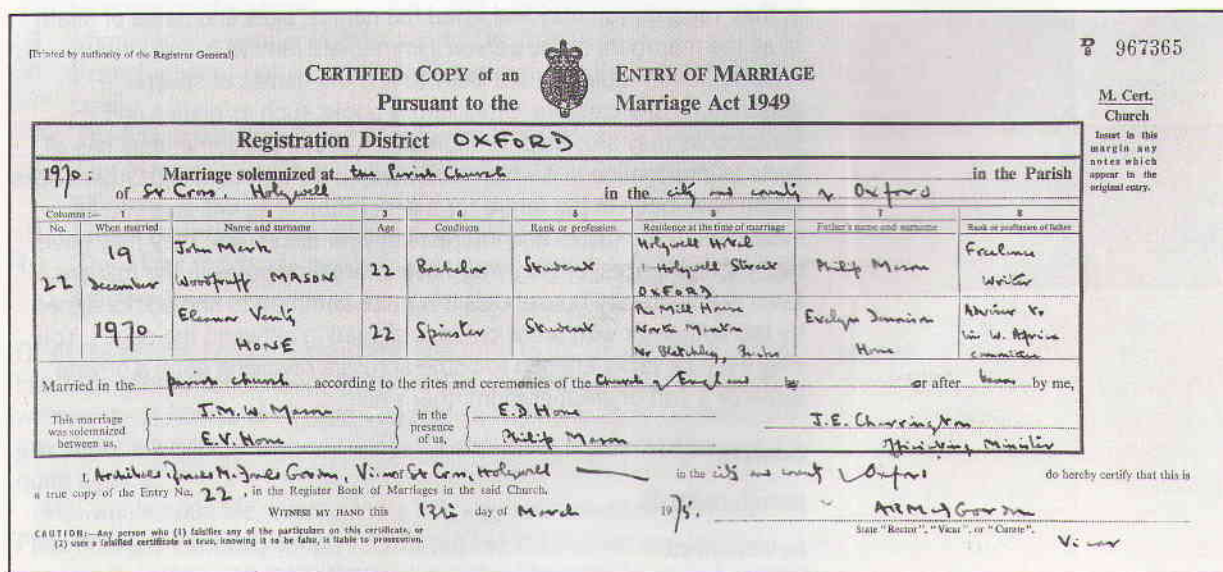 [Printed by authority of the Registrar General]
D/8 967365
CERTIFIED COPY of an ENTRY OF MARRIAGE
Pursuant to the Marriage Act 1949
M. Cert.
Church
Insert in this
margin any
notes which
appear in the
original entry.
Registration District OXFORD
1970. Marriage solemnized at the Parish Church in the Parish
of St Cross, Holywell in the city and county of Oxford
Columns:— 1 2 3 4 5 6 7 8
No. When married Name and surname Age Condition Rank or profession Residence at the time of marriage Father's name and surname Rank or profession of father
22 19 December 1970
John Mark Woodruff MASON 22 Bachelor Student Holywell Hotel Holywell Street OXFORD Philip Mason Freelance Writer
Eleanor HONE 22 Spinster Student The Mill House North Nr Bletchley, Bucks Evelyn Hone Adviser to W. Africa Committee
Married in the parish church according to the rites and ceremonies of the Church of England by or after banns by me,
This marriage
was solemnized
between us,
J.M.W. Mason
E.V. Hone
in the
presence
of us,
E.D. Hone
Philip Mason
J.E. Charrington
Officiating Minister
I, James Gordon, Vicar St Cross, Holywell in the city and county of Oxford do hereby certify that this is
a true copy of the Entry No. 22, in the Register Book of Marriages in the said Church.
WITNESS MY HAND this 13th day of March 1975. Gordon
CAUTION:—Any person who (1) falsifies any of the particulars on this certificate, or
(2) uses a falsified certificate as true, knowing it to be false, is liable to prosecution.
State "Rector", "Vicar", or "Curate".
Vicar